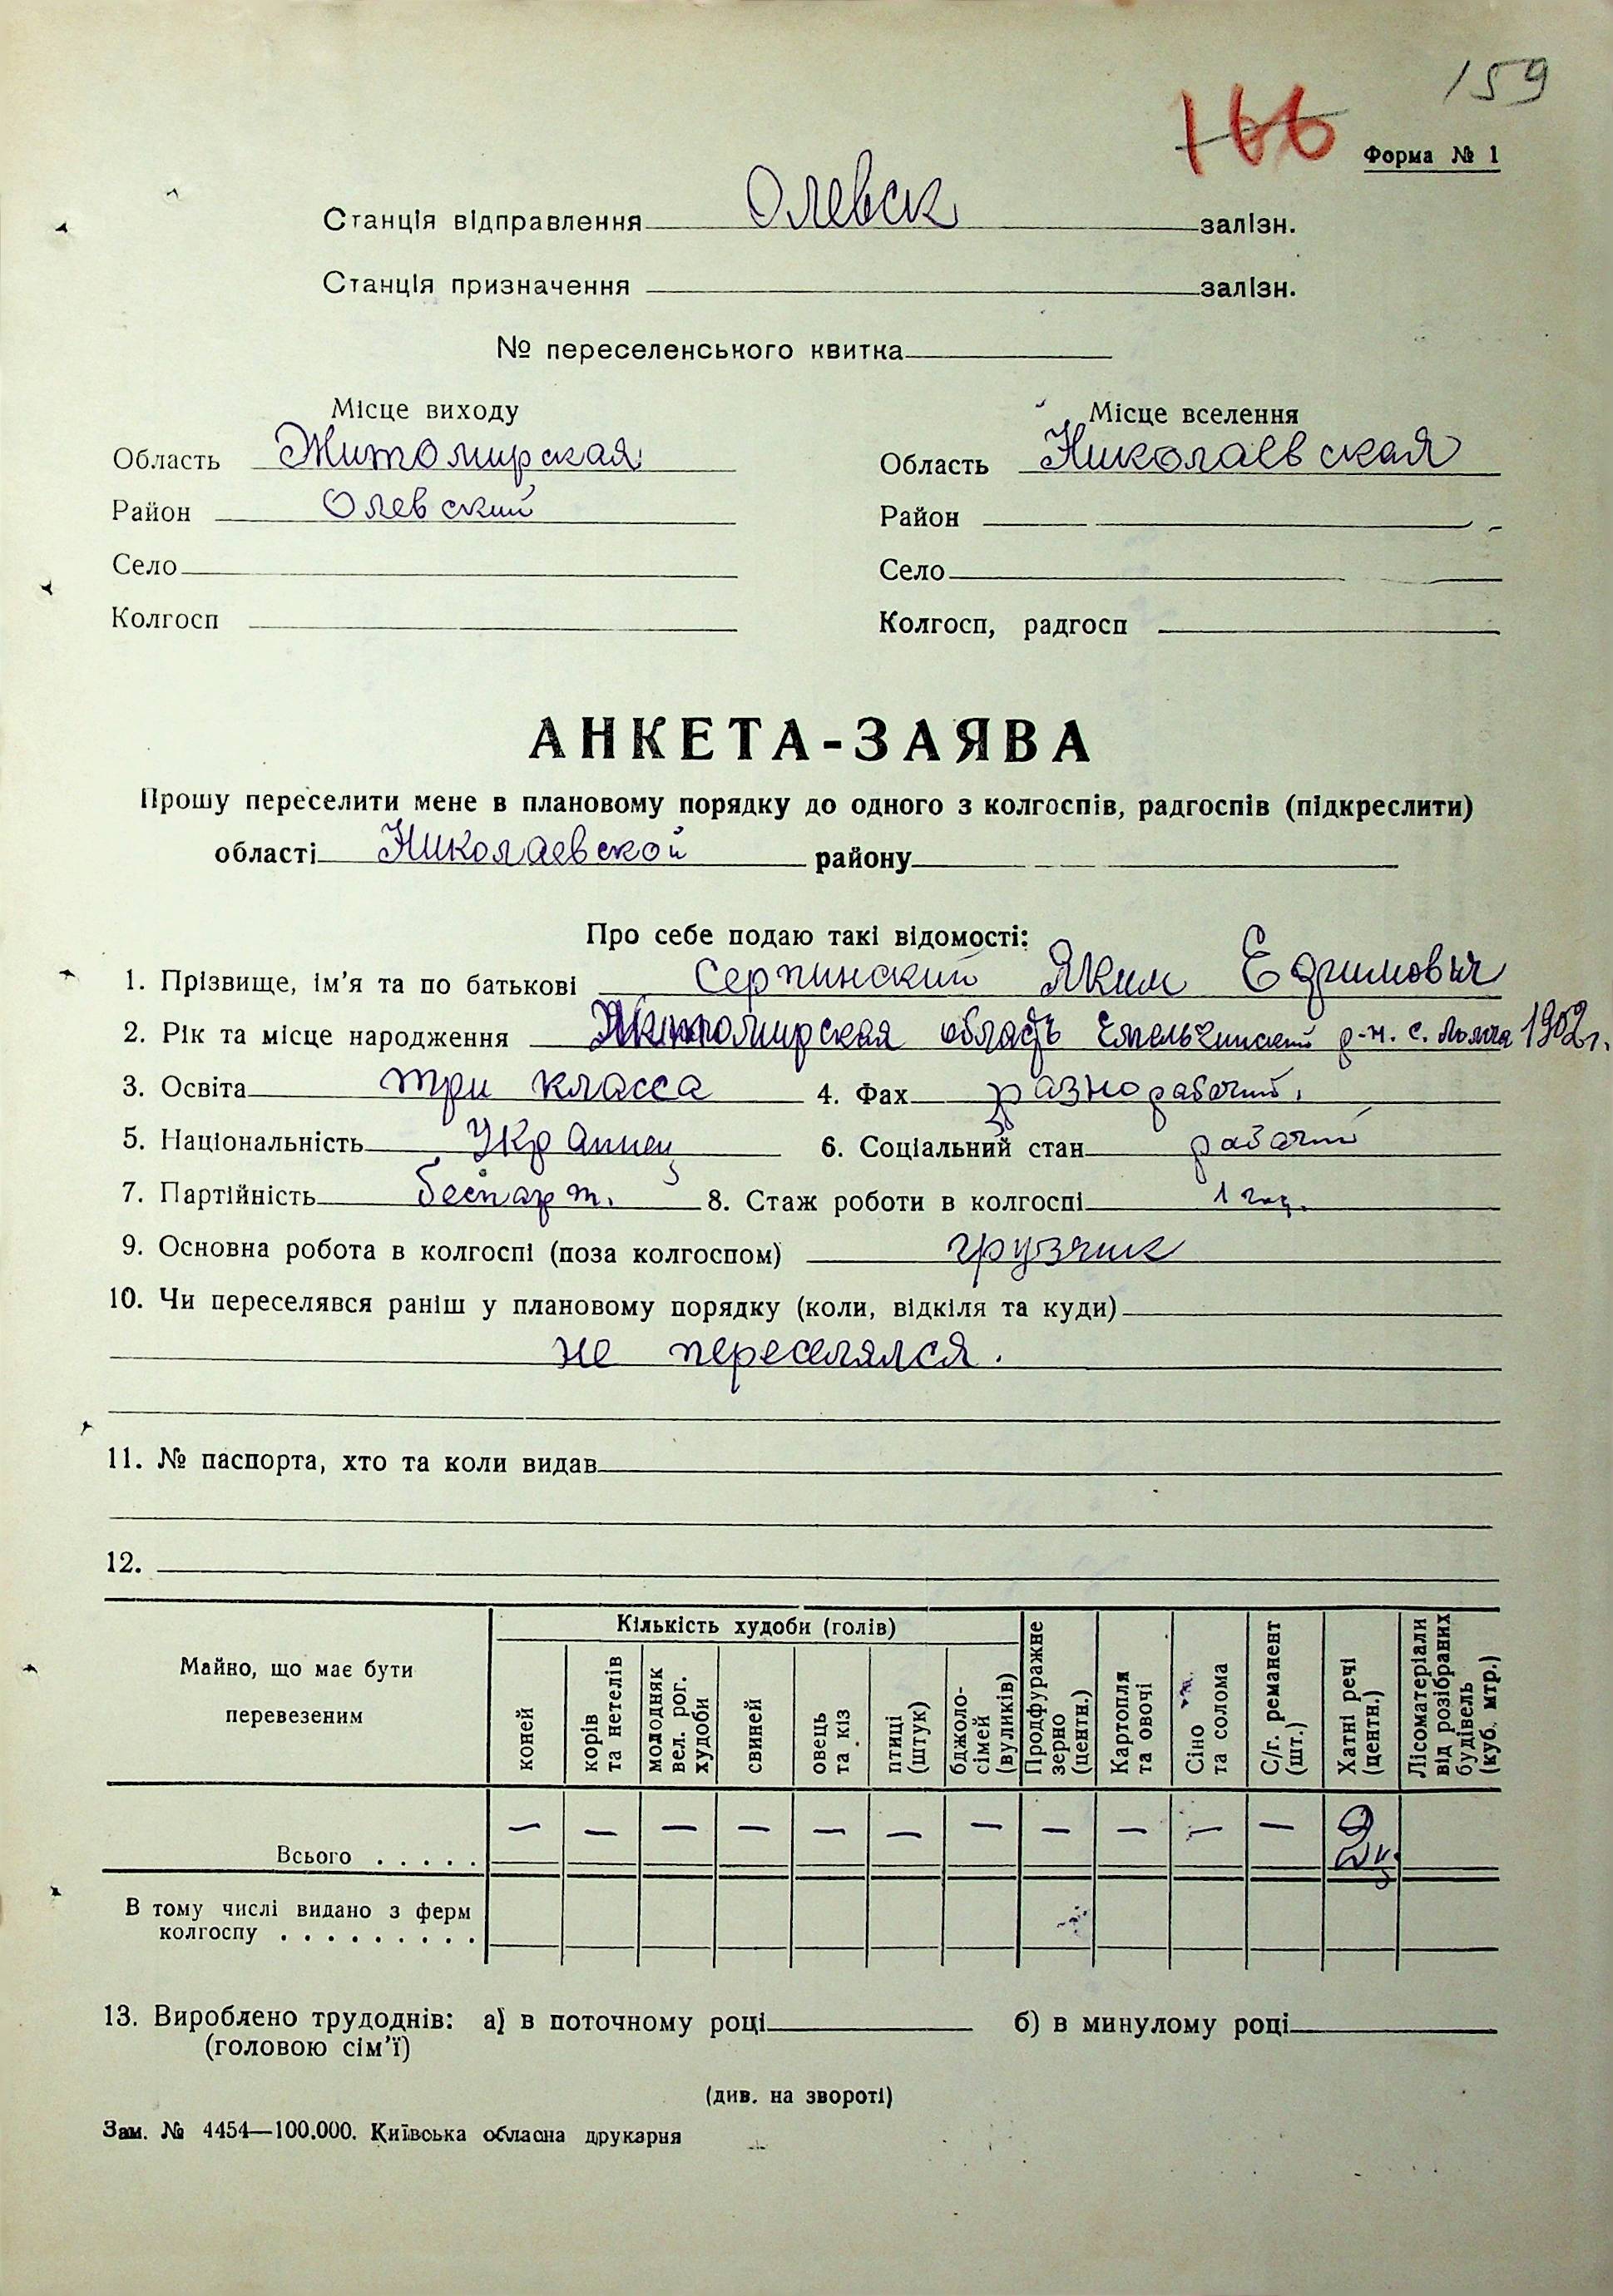 159
166
Форма № 1
Станція відправлення Олевск залізн.
Станція призначення залізн.
№ переселенського квитка
Місце виходу
Область Житомирская
Район Олевский
Село
Колгосп
Місце вселення
Область Николаевская
Район
Село
Колгосп, радгосп
АНКЕТА-ЗАЯВА
Прошу переселити мене в плановому порядку до одного з колгоспів, радгоспів (підкреслити)
області Николаевской району
Про себе подаю такі відомості:
1. Прізвище, ім'я та по батькові Серпинский Яким Ефимович
2. Рік та місце народження Житомирская область Емельчинский р-н. с. 1902 г.
3. Освіта три класса 4. Фах разнорабочий.
5. Національність Украинец 6. Соціальний стан рабочий
7. Партійність беспарт. 8. Стаж роботи в колгоспі 1 год.
9. Основна робота в колгоспі (поза колгоспом) грузчик
10. Чи переселявся раніш у плановому порядку (коли, відкіля та куди)
не переселялся.
11. № паспорта, хто та коли видав
12.
Майно, що має бути перевезеним
Кількість худоби (голів)
коней
корів та нетелів
молодняк вел. рог. худоби
свиней
овець та кіз
птиці (штук)
бджоло-сімей (вуликів)
Продфуражне зерно (центн.)
Картопля та овочі
Сіно та солома
С/г. реманент (шт.)
Хатні речі (центн.)
Лісоматеріали від розібраних будівель (куб. мтр.)
Всього . . . . . — — — — — — — — — — — 2 ц
В тому числі видано з ферм
колгоспу . . . . . . . . .
13. Вироблено трудоднів: а) в поточному році б) в минулому році
(головою сім'ї)
(див. на звороті)
Зам. № 4454—100.000. Київська обласна друкарня